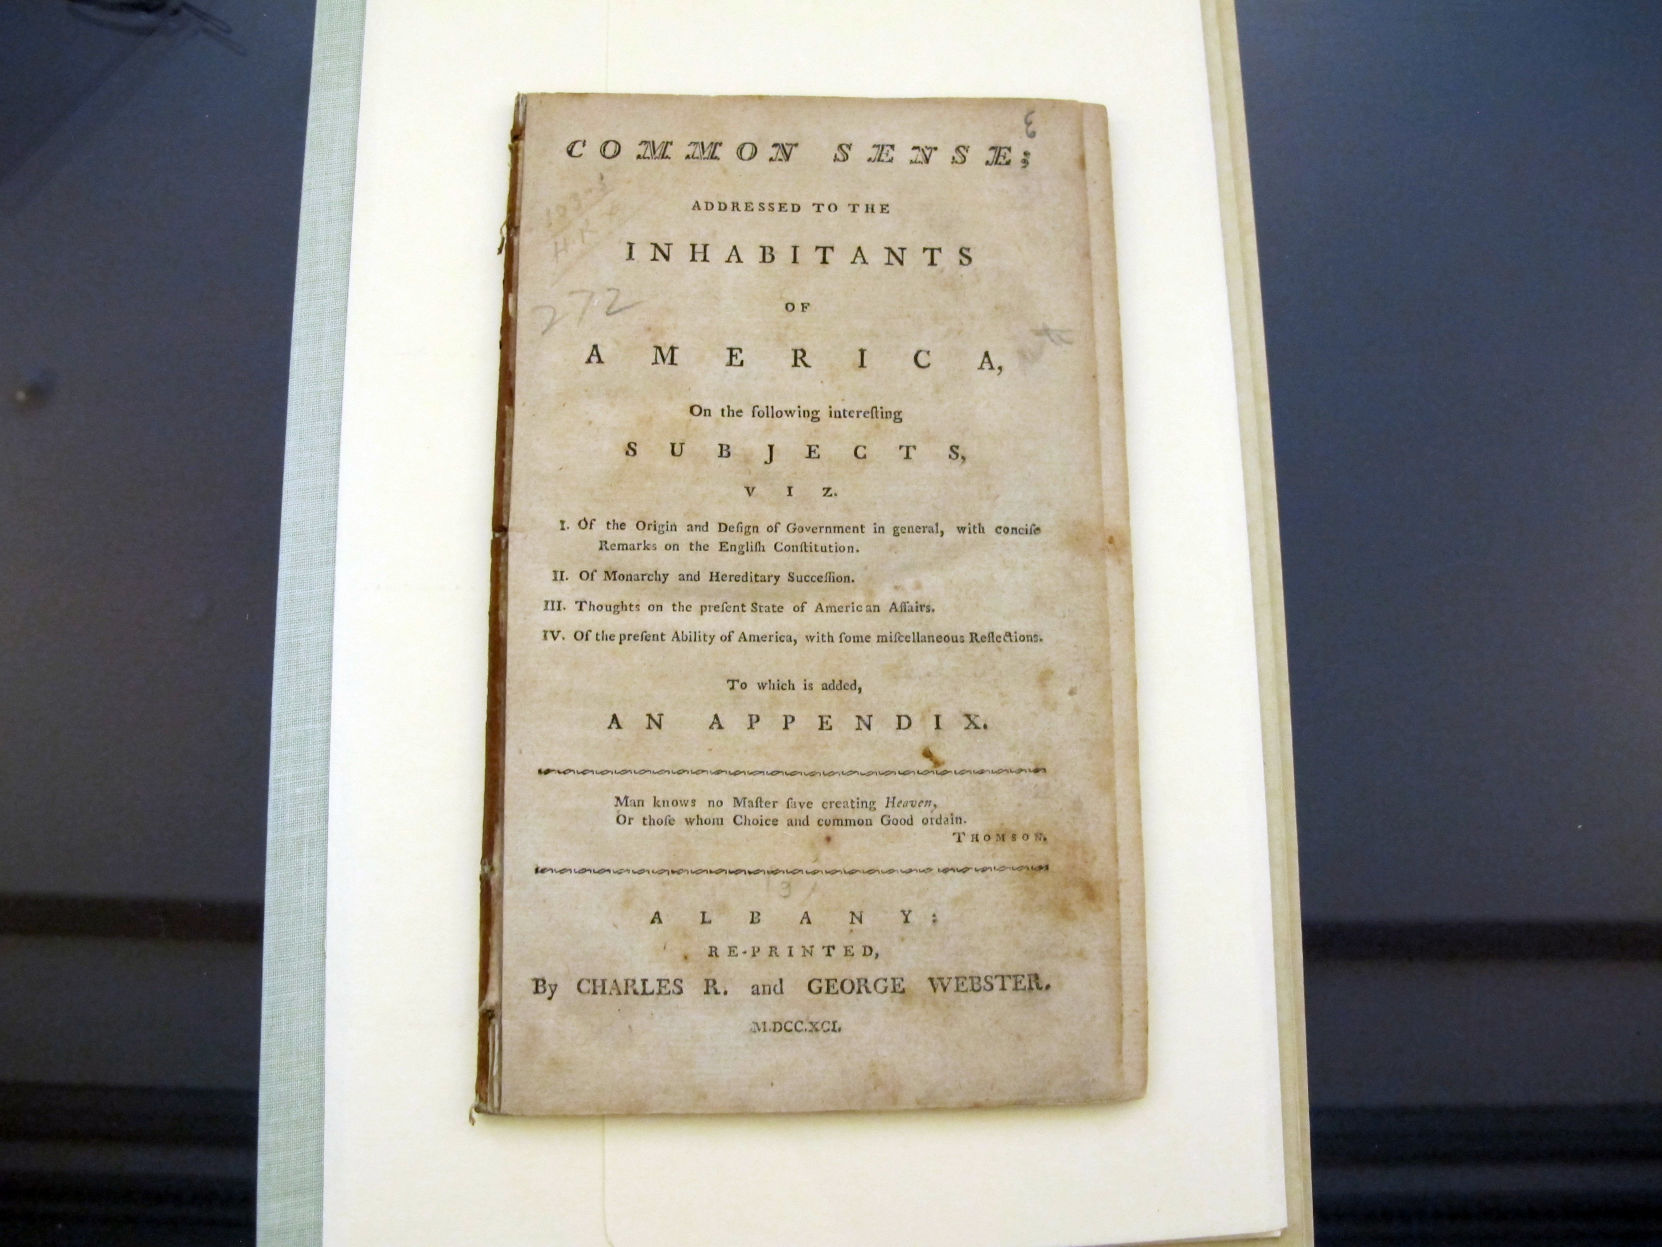 COMMON SENSE;
ADDRESSED TO THE
INHABITANTS
OF
AMERICA,
On the following intereſting
SUBJECTS,
VIZ.
I. Of the Origin and Deſign of Government in general, with conciſe
Remarks on the Engliſh Conſtitution.
II. Of Monarchy and Hereditary Succeſſion.
III. Thoughts on the preſent State of American Affairs.
IV. Of the preſent Ability of America, with ſome miſcellaneous Reflections.
To which is added,
AN APPENDIX.
Man knows no Maſter ſave creating Heaven,
Or thoſe whom Choice and common Good ordain.
THOMSON.
ALBANY:
RE-PRINTED,
By CHARLES R. and GEORGE WEBSTER.
M.DCC.XCI.
272